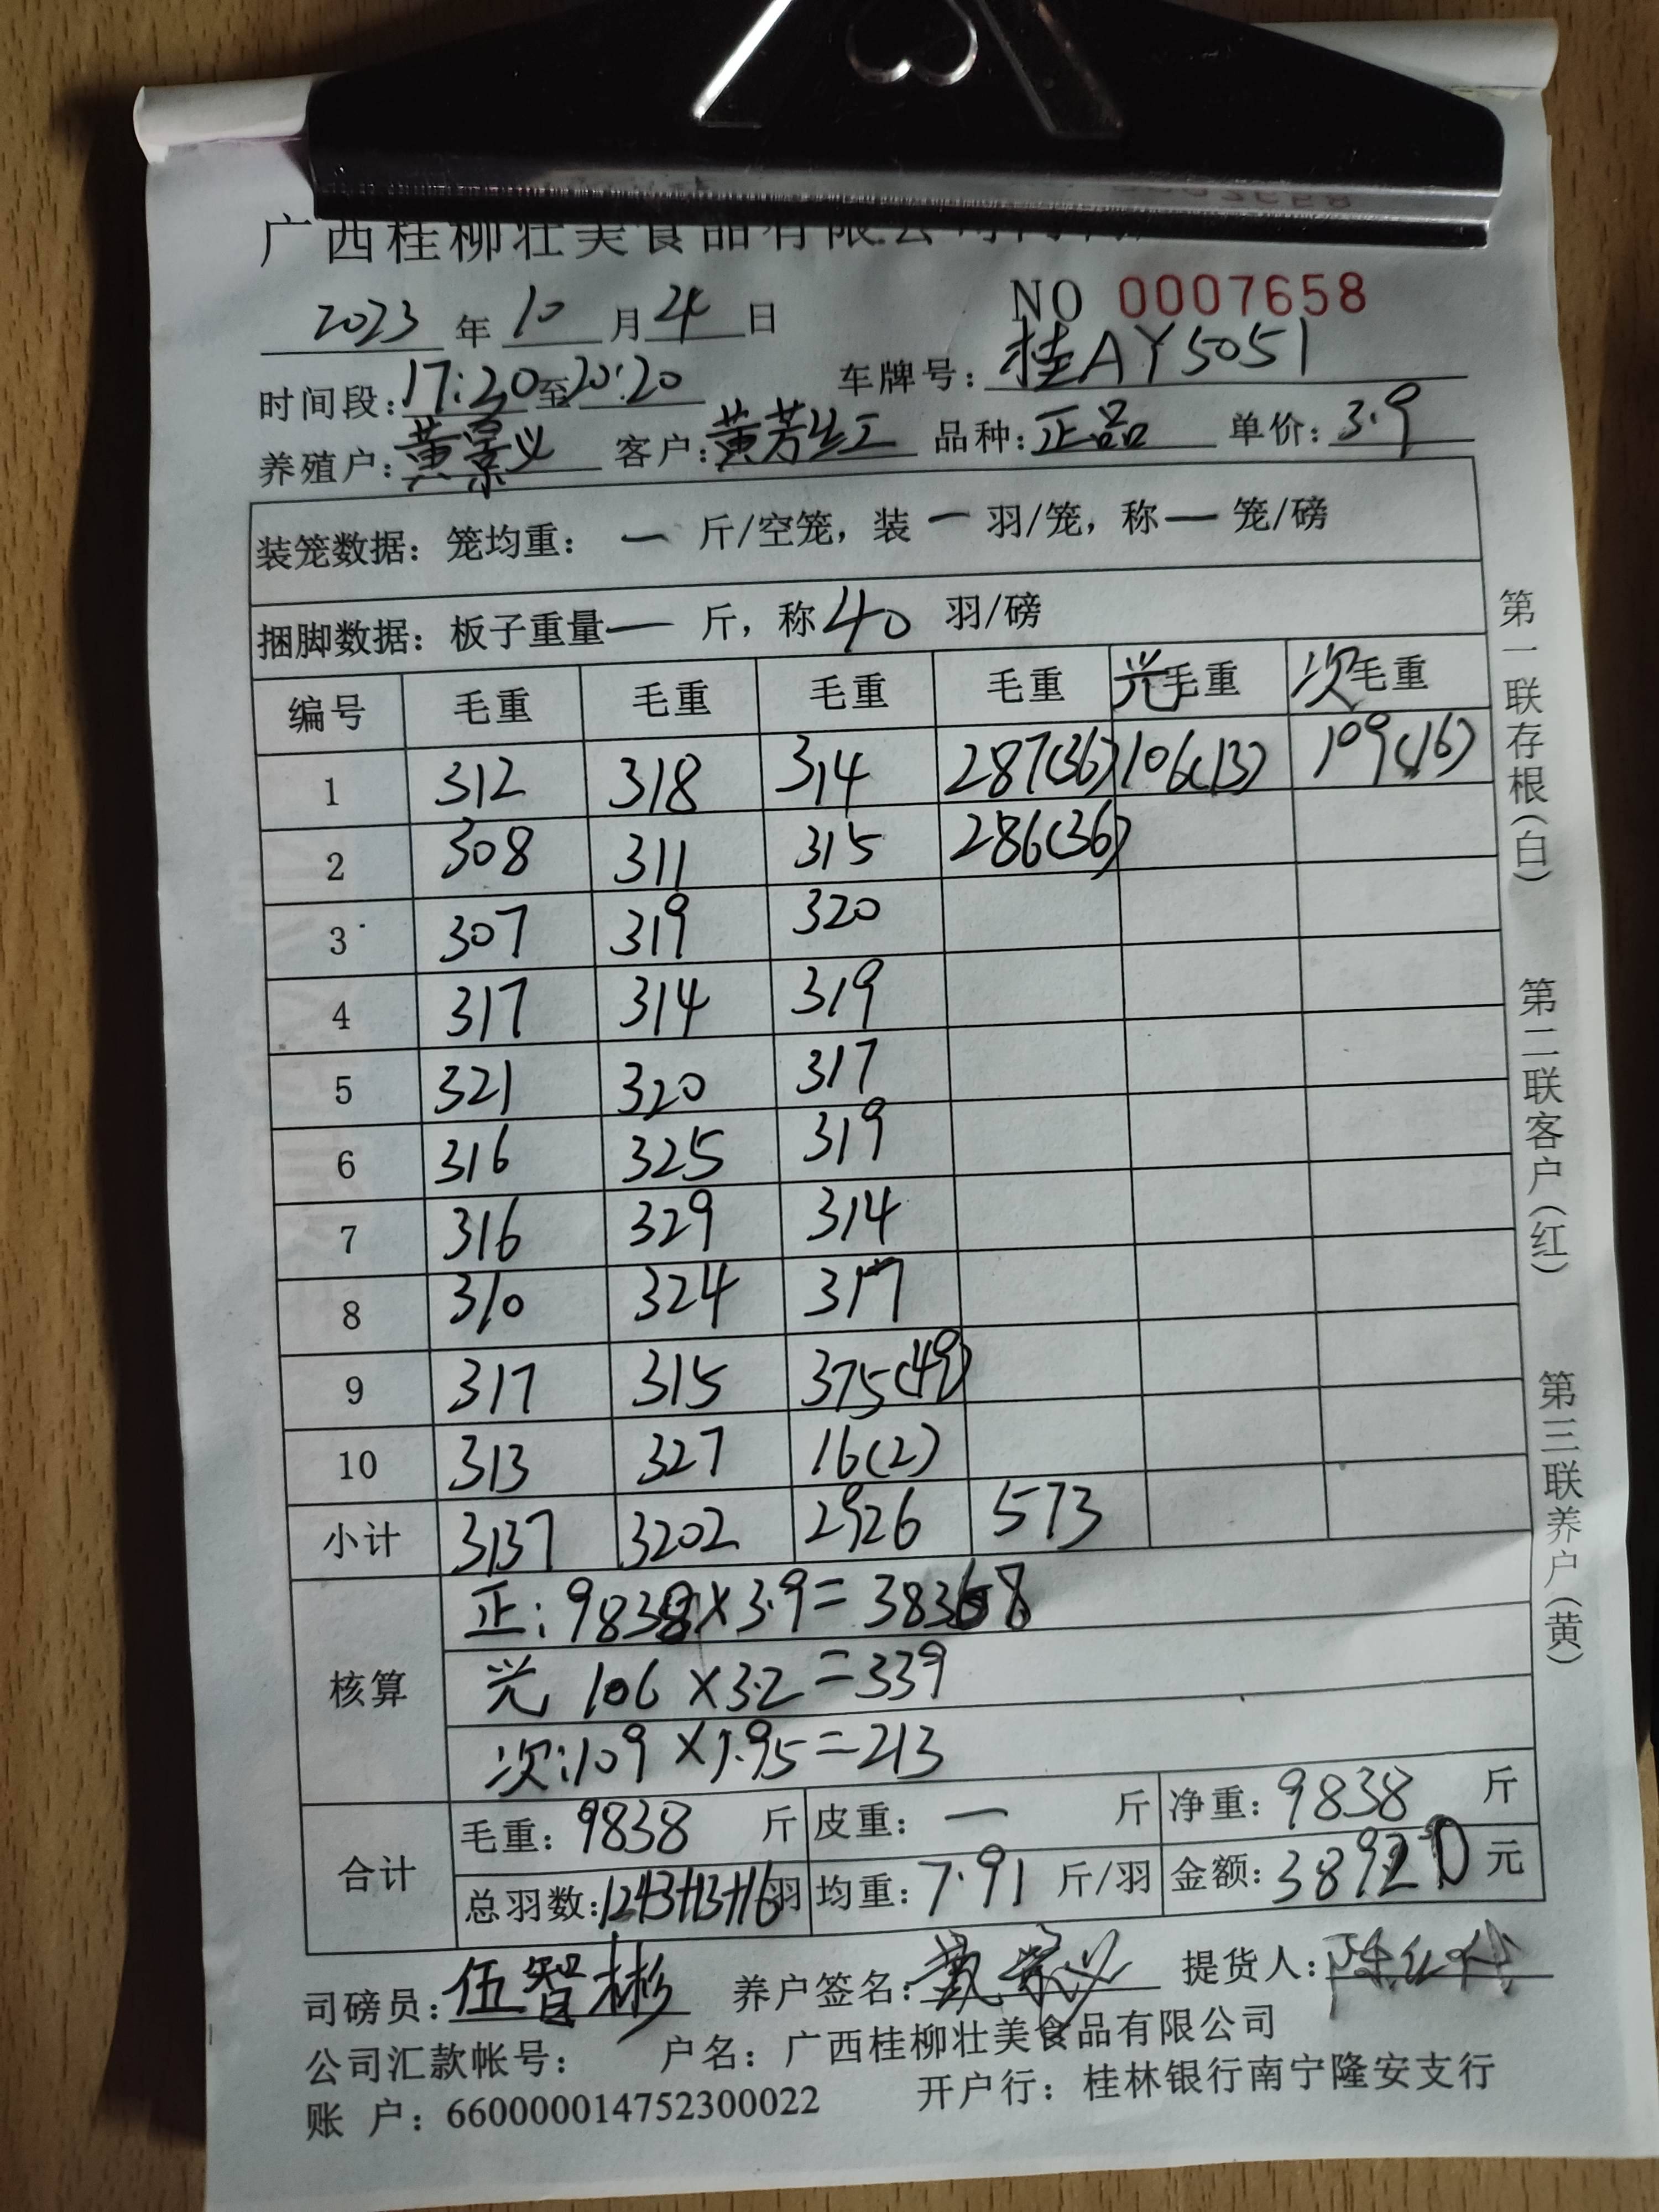 广西桂柳壮美食品有限公司
NO 0007658
2023 年 10 月 24 日
时间段：17:20 至 20:20 车牌号：桂AY5051
养殖户：黄景义 客户：黄芳 品种：正品 单价：3.9
装笼数据：笼均重：一 斤/空笼，装 一 羽/笼，称 一 笼/磅
捆脚数据：板子重量 一 斤，称 40 羽/磅
编号 毛重 毛重 毛重 毛重 光毛重 次毛重
1 312 318 314 287(36) 106(13) 109(16)
2 308 311 315 286(36)
3 307 319 320
4 317 314 319
5 321 320 317
6 316 325 319
7 316 329 314
8 310 324 317
9 317 315 375(49)
10 313 327 16(2)
小计 3137 3202 2926 573
核算
正：9838×3.9=38368
光 106×3.2=339
次：109×1.95=213
合计
毛重：9838 斤 皮重：一 斤 净重：9838 斤
总羽数：1243+13+16 羽 均重：7.91 斤/羽 金额：38920 元
司磅员：伍智彬 养户签名：黄景义 提货人：
公司汇款帐号： 户名：广西桂柳壮美食品有限公司
账 户：660000014752300022 开户行：桂林银行南宁隆安支行
第一联存根（白） 第二联客户（红） 第三联养户（黄）